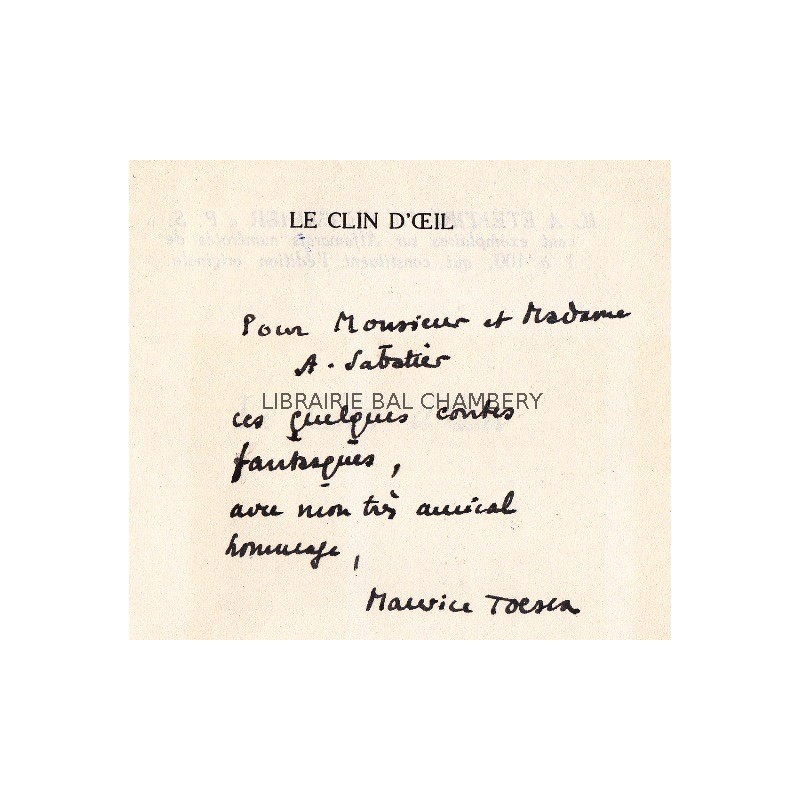 LE CLIN D'ŒIL
Pour Monsieur et Madame
A. Sabatier
LIBRAIRIE BAL CHAMBERY
ces quelques contes
fantasques,
avec mon très amical
hommage,
Maurice Toesca